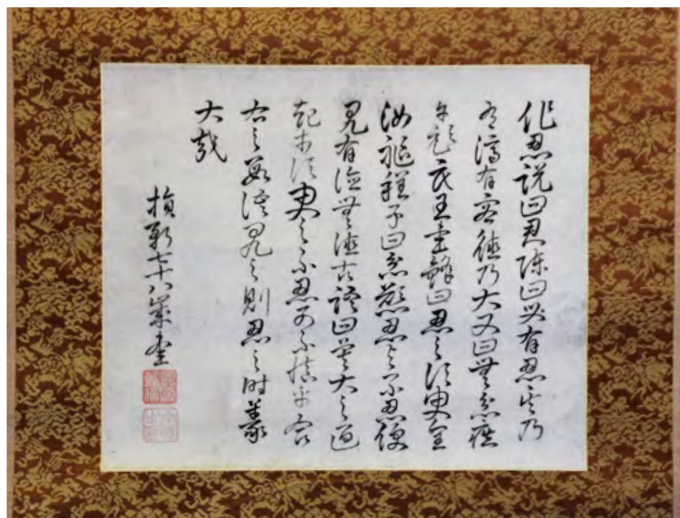 作忍説曰君陳曰必有忍其乃
有濟有容徳乃大又曰無忿疾
于頑武王書鋒曰忍之須臾全
汝軀程子曰忿慾忍与不忍便
見有徳無徳古語曰莫大之過
起於須臾之不忍可不慎乎合
右之數語見之則忍之時義
大哉
損軒七十八歳書